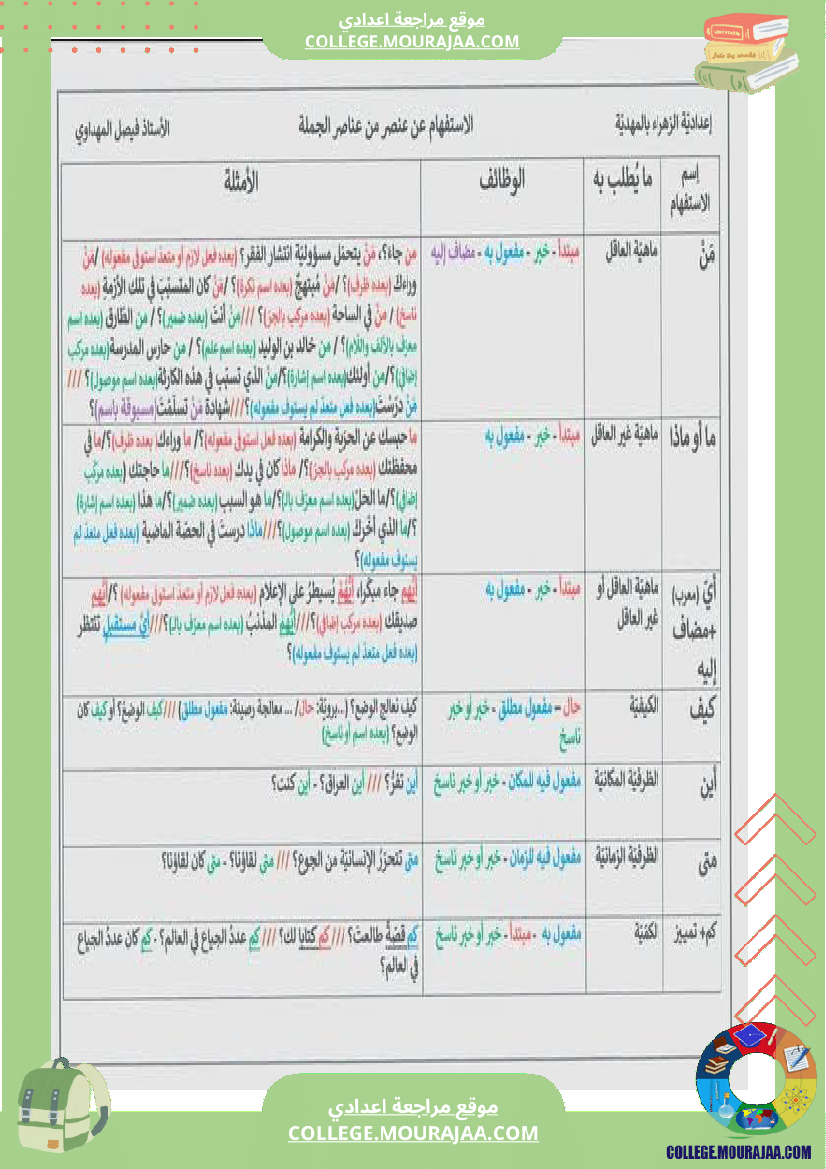 موقع مراجعة اعدادي
COLLEGE.MOURAJAA.COM
إعداديّة الزهراء بالمهديّة
الاستفهام عن عنصر من عناصر الجملة
الأستاذ فيصل المهداوي
إسم الاستفهام
ما يُطلب به
الوظائف
الأمثلة
مَنْ
ماهيّة العاقل
مبتدأ - خبر - مفعول به - مضاف إليه
من جاء؟، مَنْ يتحمّل مسؤوليّة انتشار الفقر؟ (بعده فعل لازم أو متعدّ استوفى مفعوله) /مَنْ
وراءكَ (بعده ظرف)؟ /مَنْ مُبتهجٌ (بعده اسم نكرة)؟ /مَنْ كان المتسبّبَ في تلك الأزمةِ (بعده
ناسخ) / مَنْ في الساحة (بعده مركب بالجرّ)؟ ///مَنْ أنتَ (بعده ضمير)؟ / من الطّارق (بعده اسم
معرّف بالألف واللّام)؟ / من خالد بن الوليد (بعده اسم علم)؟ / من حارس المدرسة(بعده مركب
إضافي)؟/من أولئك(بعده اسم إشارة)؟/مَنْ الذي تسبّب في هذه الكارثة(بعده اسم موصول)؟ ///
مَنْ درّسْتَ(بعده فعل متعدّ لم يستوف مفعوله)؟///شهادة مَنْ تسلّمْتَ(مسبوقة باسم)؟
ما أو ماذا
ماهيّة غير العاقل
مبتدأ - خبر - مفعول به
ما حبسك عن الحريّة والكرامة (بعده فعل استوفى مفعوله)؟/ ما وراءك( بعده ظرف)؟/ما في
محفظتك (بعده مركب بالجرّ)؟/ ماذا كان في يدك (بعده ناسخ)؟///ما حاجتك (بعده مركّب
إضافي)؟/ما الحلّ(بعده اسم معرّف بال)؟/ما هو السبب (بعده ضمير)؟/ما هذا (بعده اسم إشارة)
؟/ما الذي أخّرك (بعده اسم موصول)؟///ماذا درستَ في الحصّة الماضية (بعده فعل متعدّ لم
يستوف مفعوله)؟
أيّ (معرب) +مضاف إليه
ماهيّة العاقل أو غير العاقل
مبتدأ - خبر - مفعول به
أيّهم جاء مبكّرا، أيُّهُمْ يُسيطرُ على الإعلام (بعده فعل لازم أو متعدّ استوفى مفعوله) ؟/أيّهم
صديقك (بعده مركب إضافي)؟///أيّهم المذنبُ (بعده اسم معرّف بال)؟///أيَّ مستقبلٍ تنتظر
(بعده فعل متعدّ لم يستوف مفعوله)؟
كيف
الكيفيّة
حال – مفعول مطلق - خبر أو خبر ناسخ
كيف نعالج الوضع؟ (..برويّة: حال/ ... معالجة رصينة: مفعول مطلق) ///كيف الوضعُ؟ أو كيف كان
الوضع؟ (بعده اسم أو ناسخ)
أين
الظرفيّة المكانيّة
مفعول فيه للمكان - خبر أو خبر ناسخ
أين تفرُّ؟ /// أين العراق؟ - أين كنت؟
متى
لظرفيّة الزمانيّة
مفعول فيه للزمان - خبر أو خبر ناسخ
متى تتحرّرُ الإنسانيّة من الجوع؟ /// متى لقاؤنا؟ - متى كان لقاؤنا؟
كم+ تمييز
لكمّيّة
مفعول به - مبتدأ - خبر أو خبر ناسخ
كم قصّةً طالعتَ؟ /// كم كتابا لك؟ /// كم عددُ الجياع في العالم؟ - كم كان عددُ الجياع
في لعالم؟
موقع مراجعة اعدادي
COLLEGE.MOURAJAA.COM
COLLEGE.MOURAJAA.COM